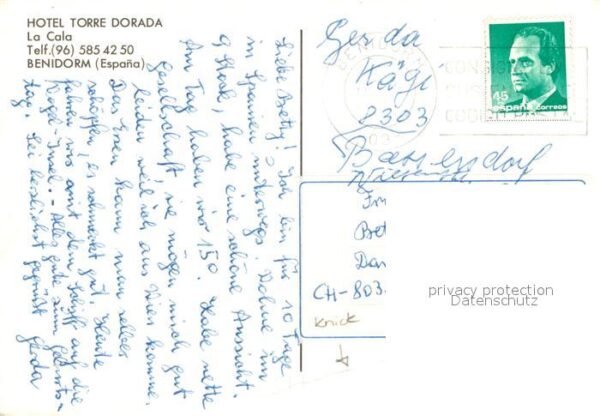 HOTEL TORRE DORADA
La Cala
Telf.(96) 585 42 50
BENIDORM (España)
Liebe Betty! Ich bin für 10 Tage
in Spanien unterwegs. Wohne im
9 Stock, habe eine schöne Aussicht.
Am Tag haben wir 15°. Habe nette
Gesellschaft sie mögen mich gut
leiden weil ich aus Wies komme.
Das Essen kann man selber
schöpfen, es schmeckt gut. Heute
fahren wir mit dem Schiff auf die
Vogel-Insel. - Alles gute zum Geburts-
tag. Sei herzlichst gegrüsst Gerda
Gerda
Kägi
8303
Bassersdorf
45
españa correos
CONSIGNE
CODIGO POSTAL
Im
Bet
Dar
CH-803
Knick
privacy protection
Datenschutz